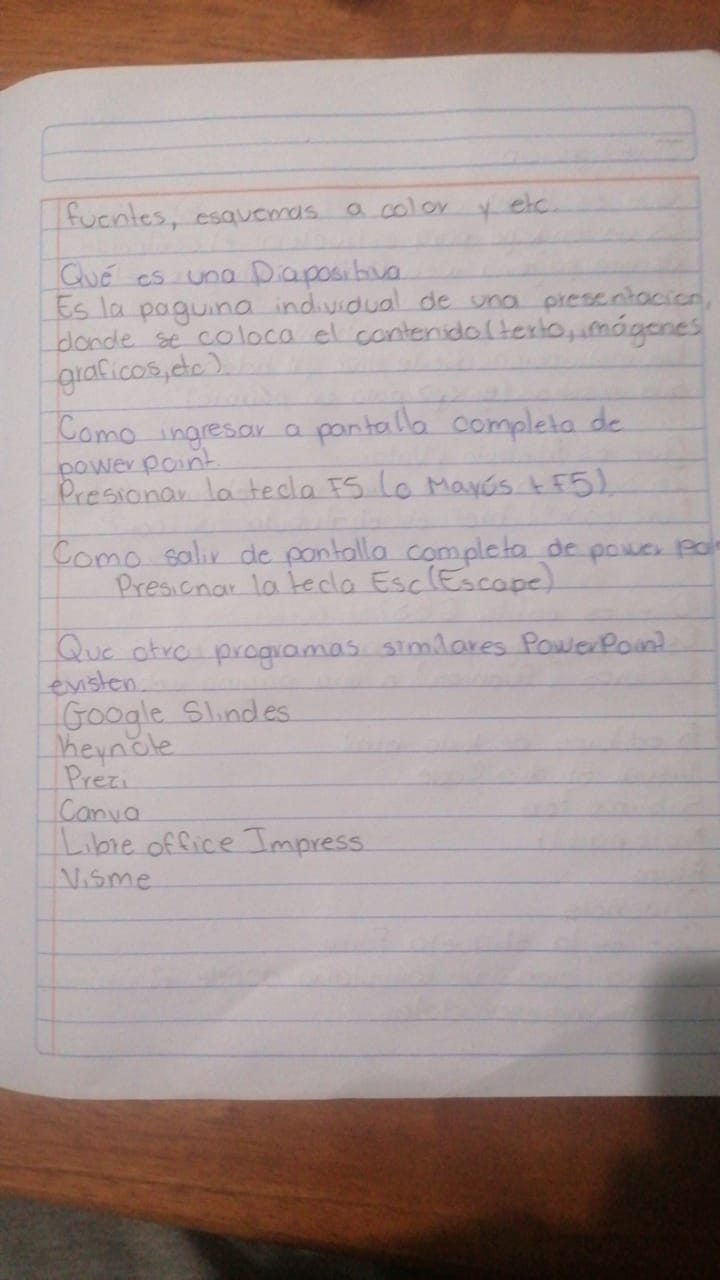 fuentes, esquemas a color y etc.
Qué es una Diapositiva
Es la paguina individual de una presentacion,
donde se coloca el contenido(texto, imágenes
graficos,etc).
Como ingresar a pantalla completa de
power point.
Presionar la tecla F5 (o Mayús + F5).
Como salir de pantalla completa de power
Presionar la tecla Esc(Escape)
Que otro programas similares PowerPoint
existen.
Google Slindes
Keynote
Prezi
Canva
Libre office Impress
Visme